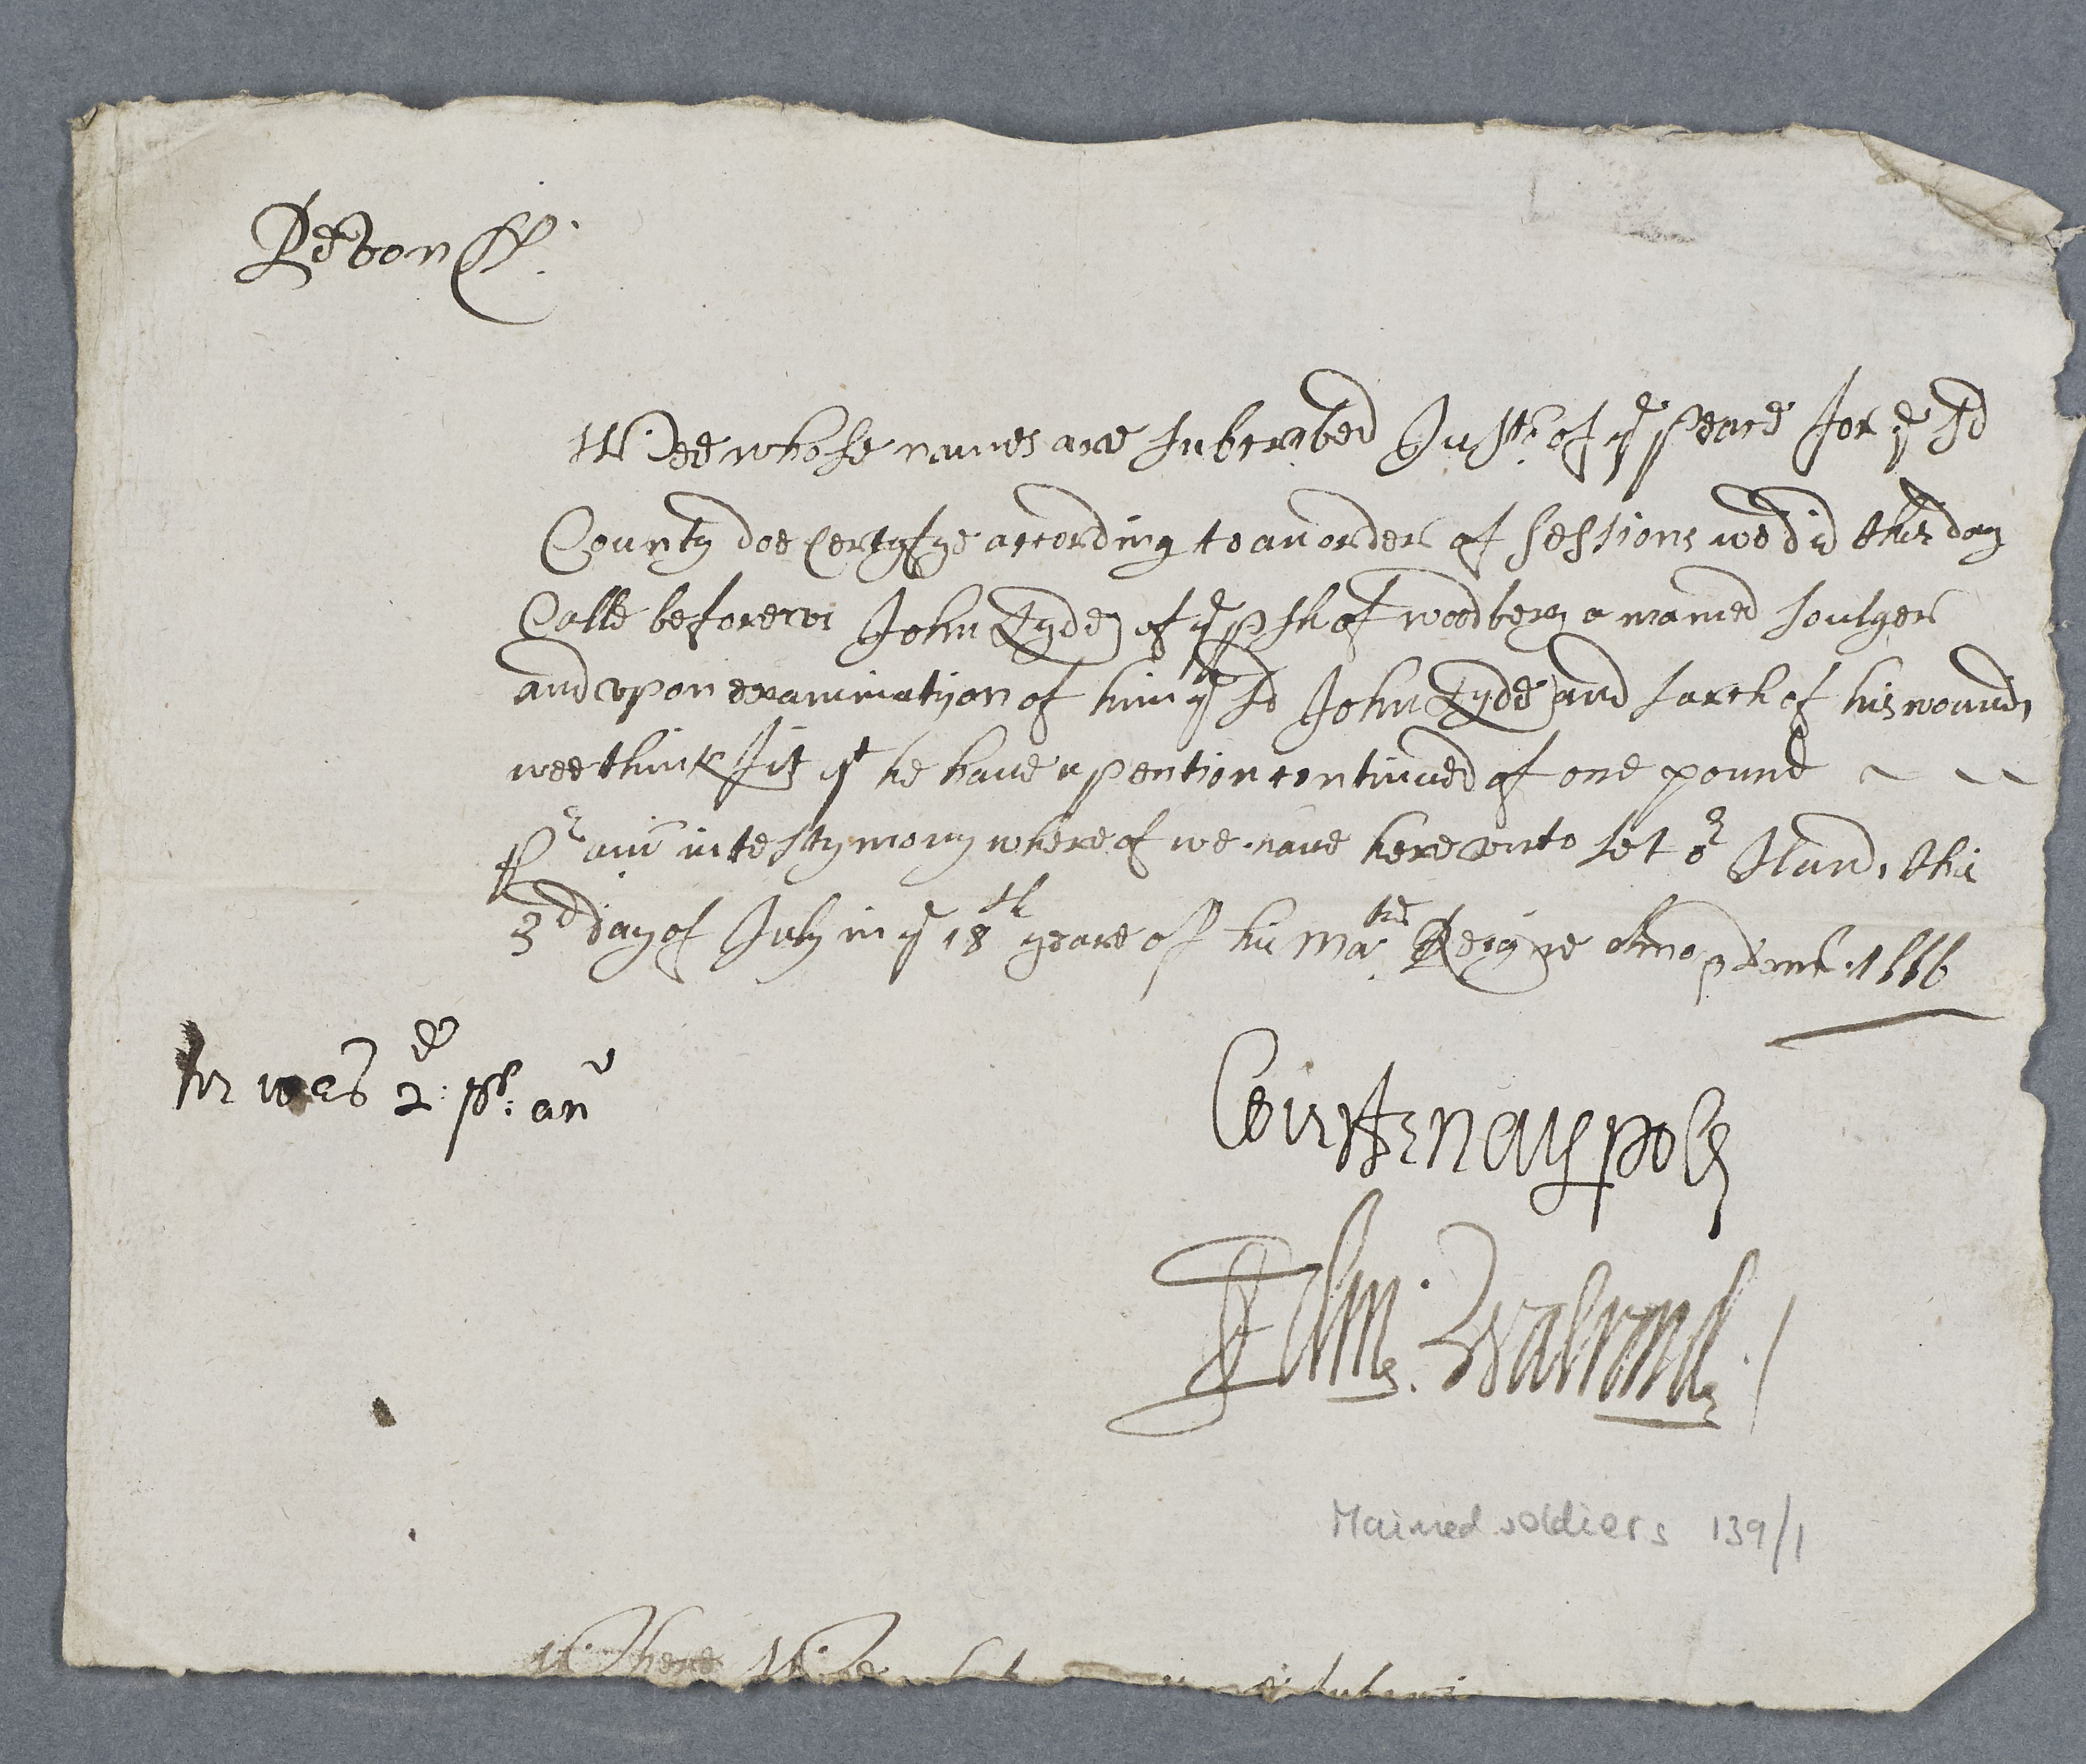 Devon ss.
Wee whose names are subcribed Justs: of ye peace for ye sd
County doe certyfye according to an order of sessions we did this day
Calle before us John Lyde of ye psh of woodbery a mamed soulger
and upon examinatyon of him ye sd John Lyde and sarch of his wounds
wee think fit yt he have a pention continued of one pound
pr ann in testtymony whereof we have here unto set or Hands this
3d day of July in ye 18th yeare of his Matie Reigne Anno Dom 1666
hee was 2li: pr: an
Courtenay pole
Edm: Walrond
Mained soldiers 139/1
Where Wee